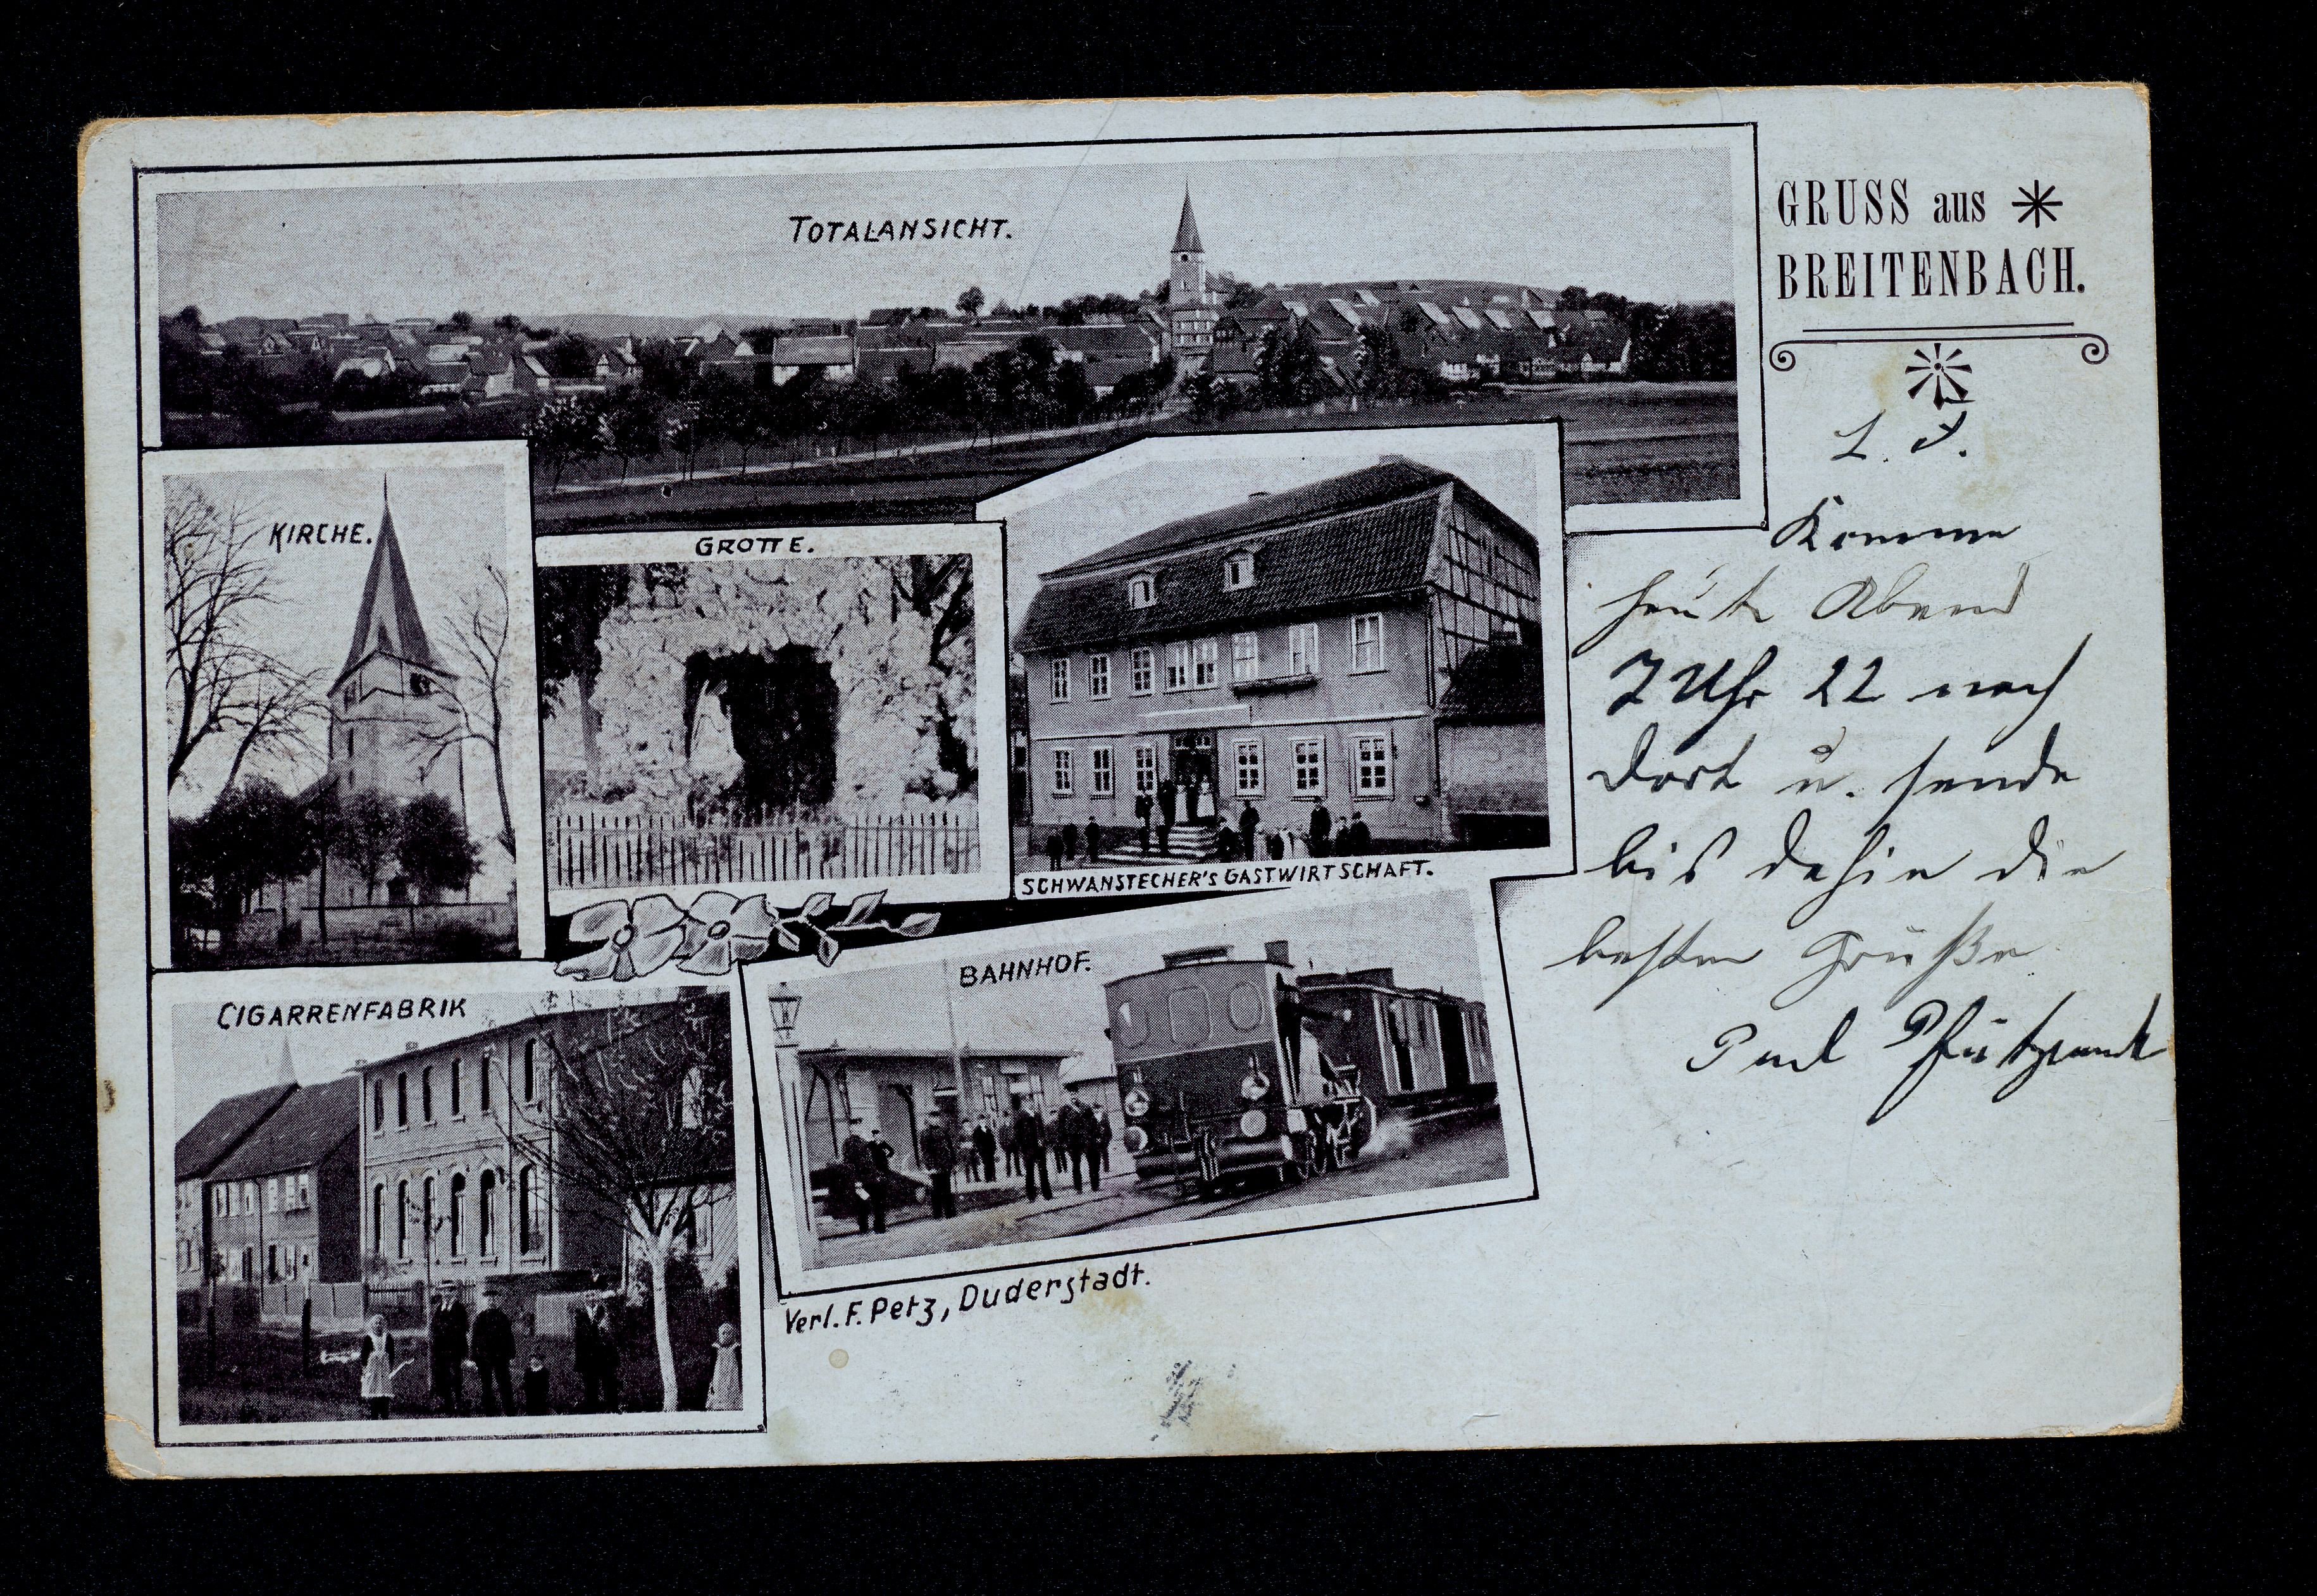 GRUSS aus
BREITENBACH.
TOTALANSICHT.
KIRCHE.
GROTTE.
SCHWANSTECHER's GASTWIRTSCHAFT.
CIGARRENFABRIK
BAHNHOF.
Verl. F. Petz, Duderstadt.
L. F.
Komme
heute Abend
7 Uhr 22 nach
dort u. sende
bis dahin die
besten Grüße
Paul